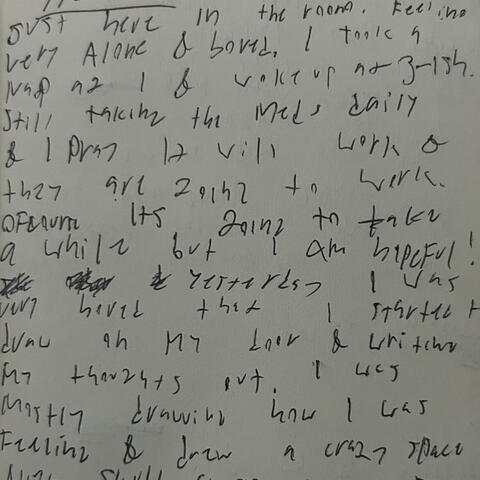 Just here in the room. Feeling
very Alone & bored. I took a
nap at 1 & woke up at 3-ish.
Still taking the Meds daily
& I Pray It will work &
they are going to work.
OFcourse Its going to take
a while but I am hopeful!
Yesterday I was
very bored that I started t
draw on My door & writing
My thoughts out. I was
Mostly drawing how I was
Feeling & drew a crazy space
skull